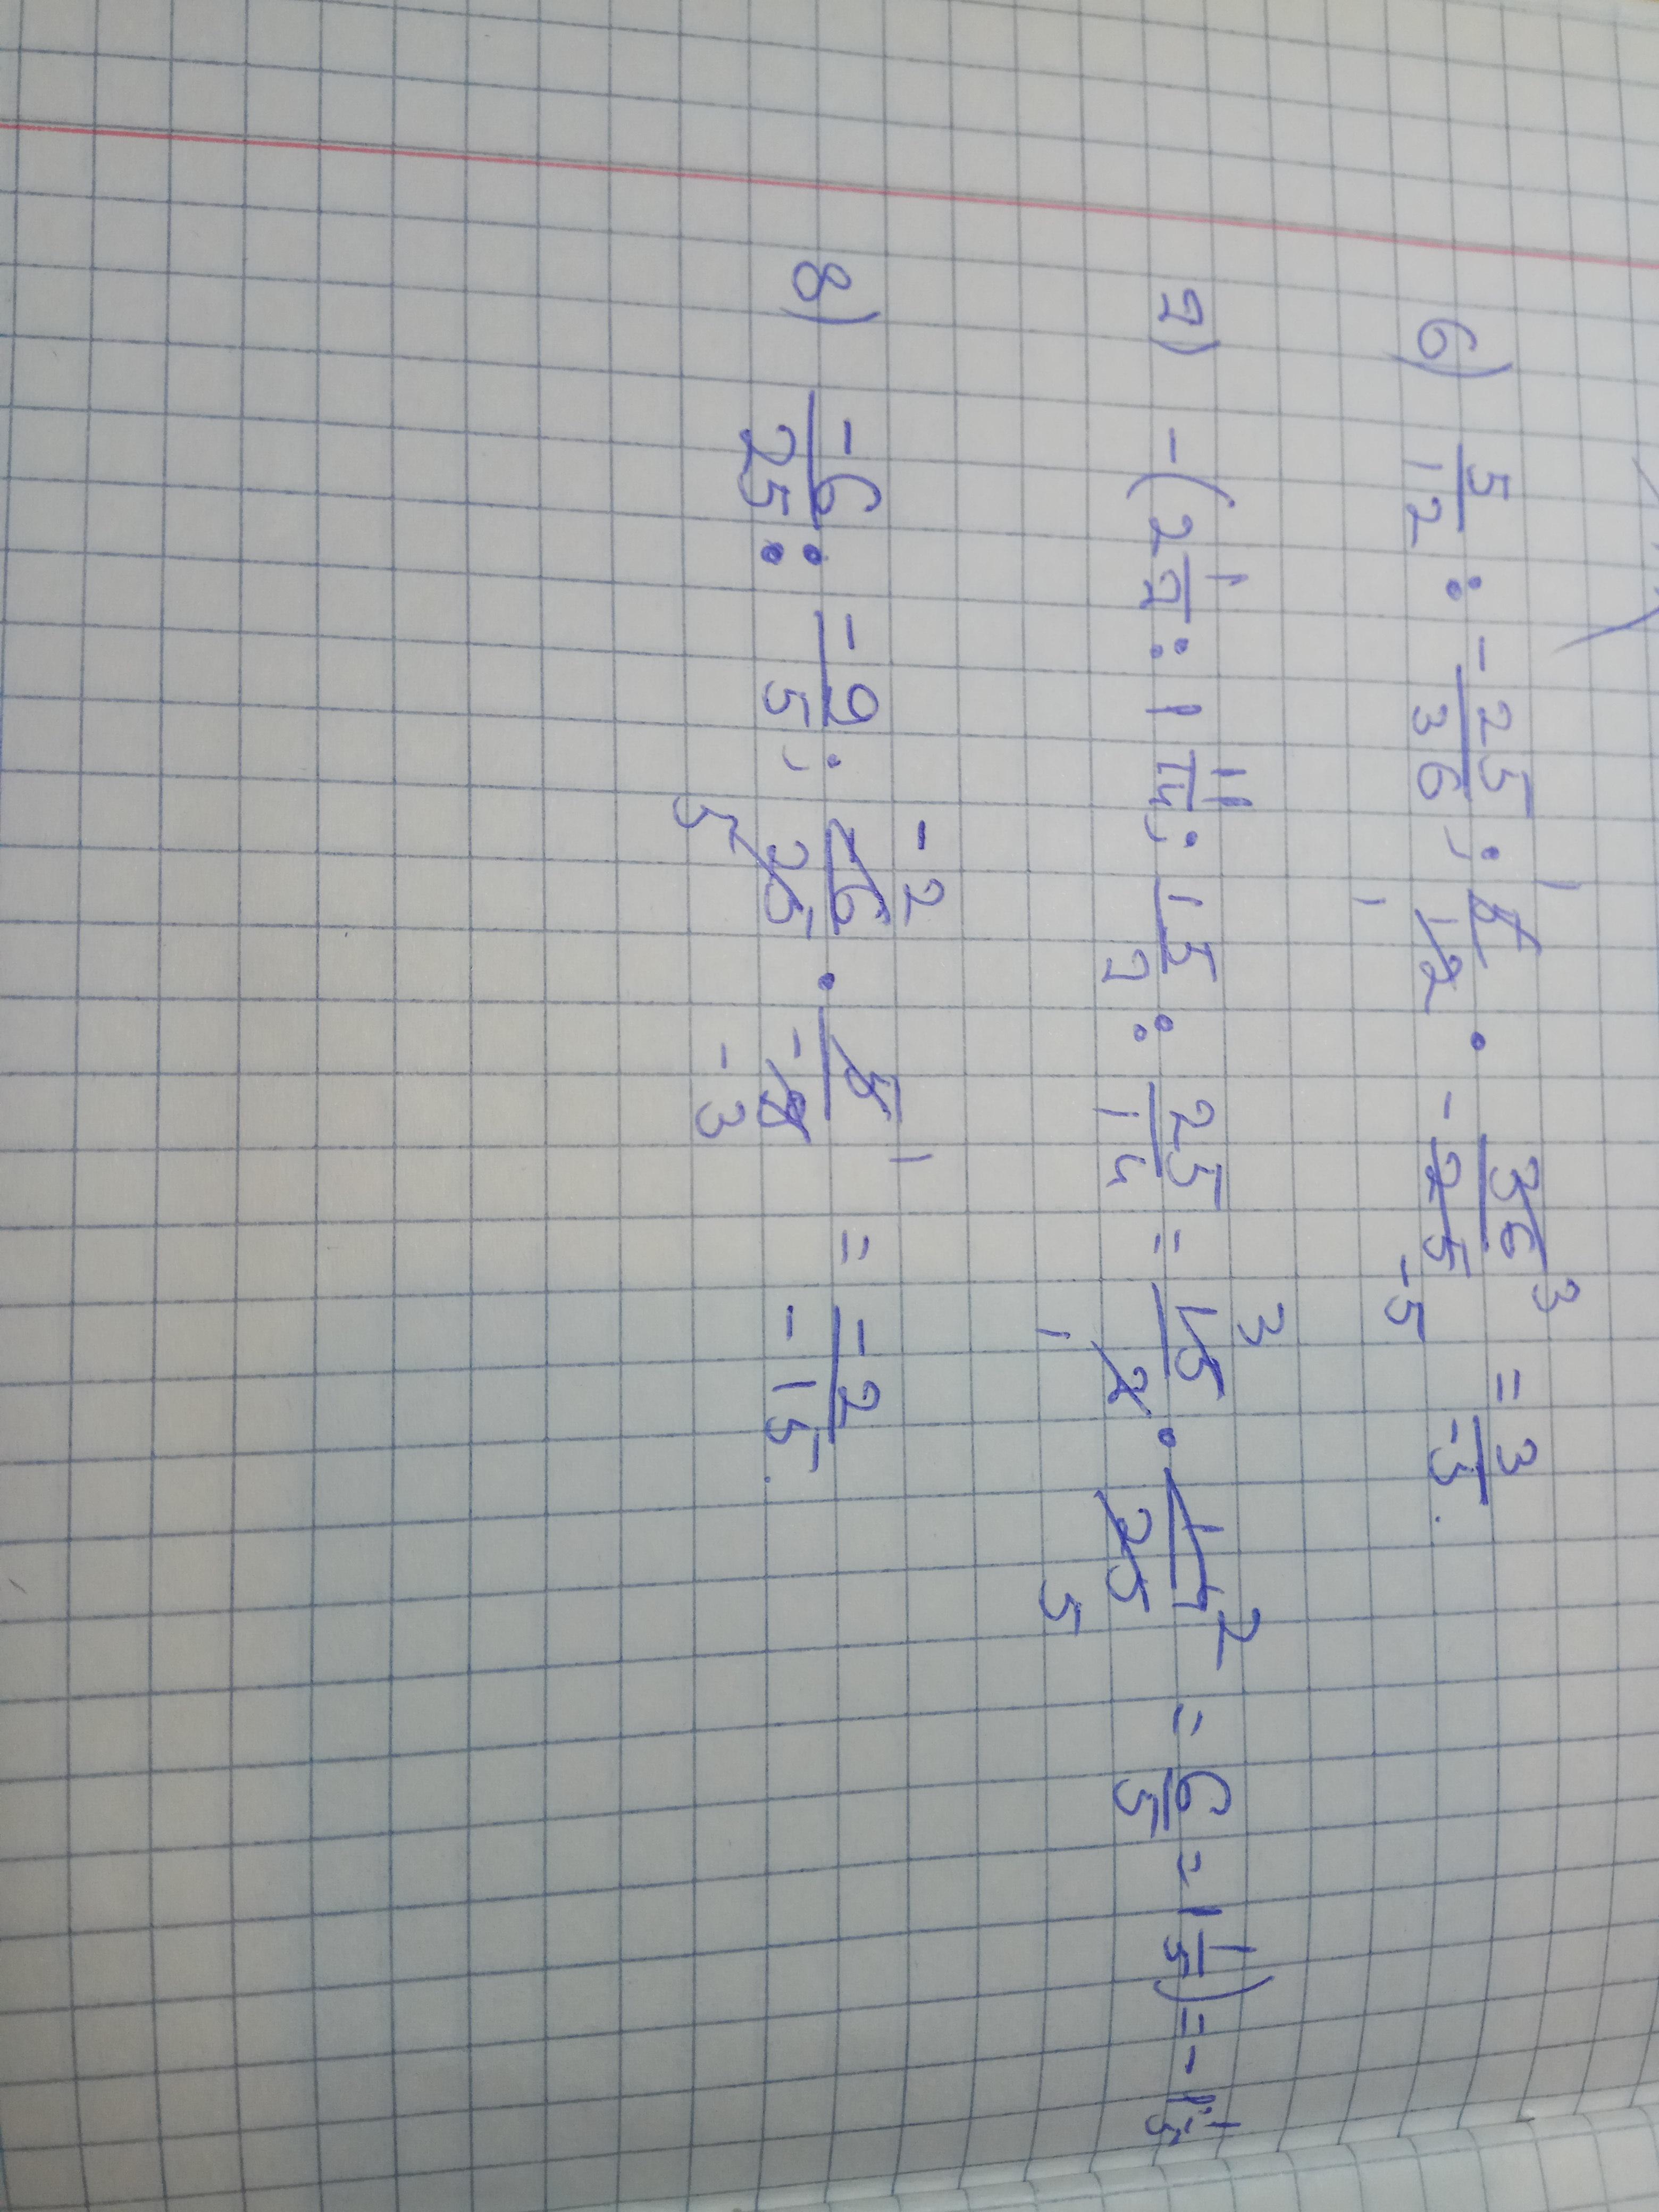 6) 5/12 : -25/36; 5/12 · 36/-25 = 3/-5.
7) -(2 1/7 : 1 11/14; 15/7 : 25/14 = 15/7 · 14/25 = 6/5 = 1 1/5) = -1 1/5
8) -6/25 : -9/5; -6/25 · 5/-9 = -2/-15.